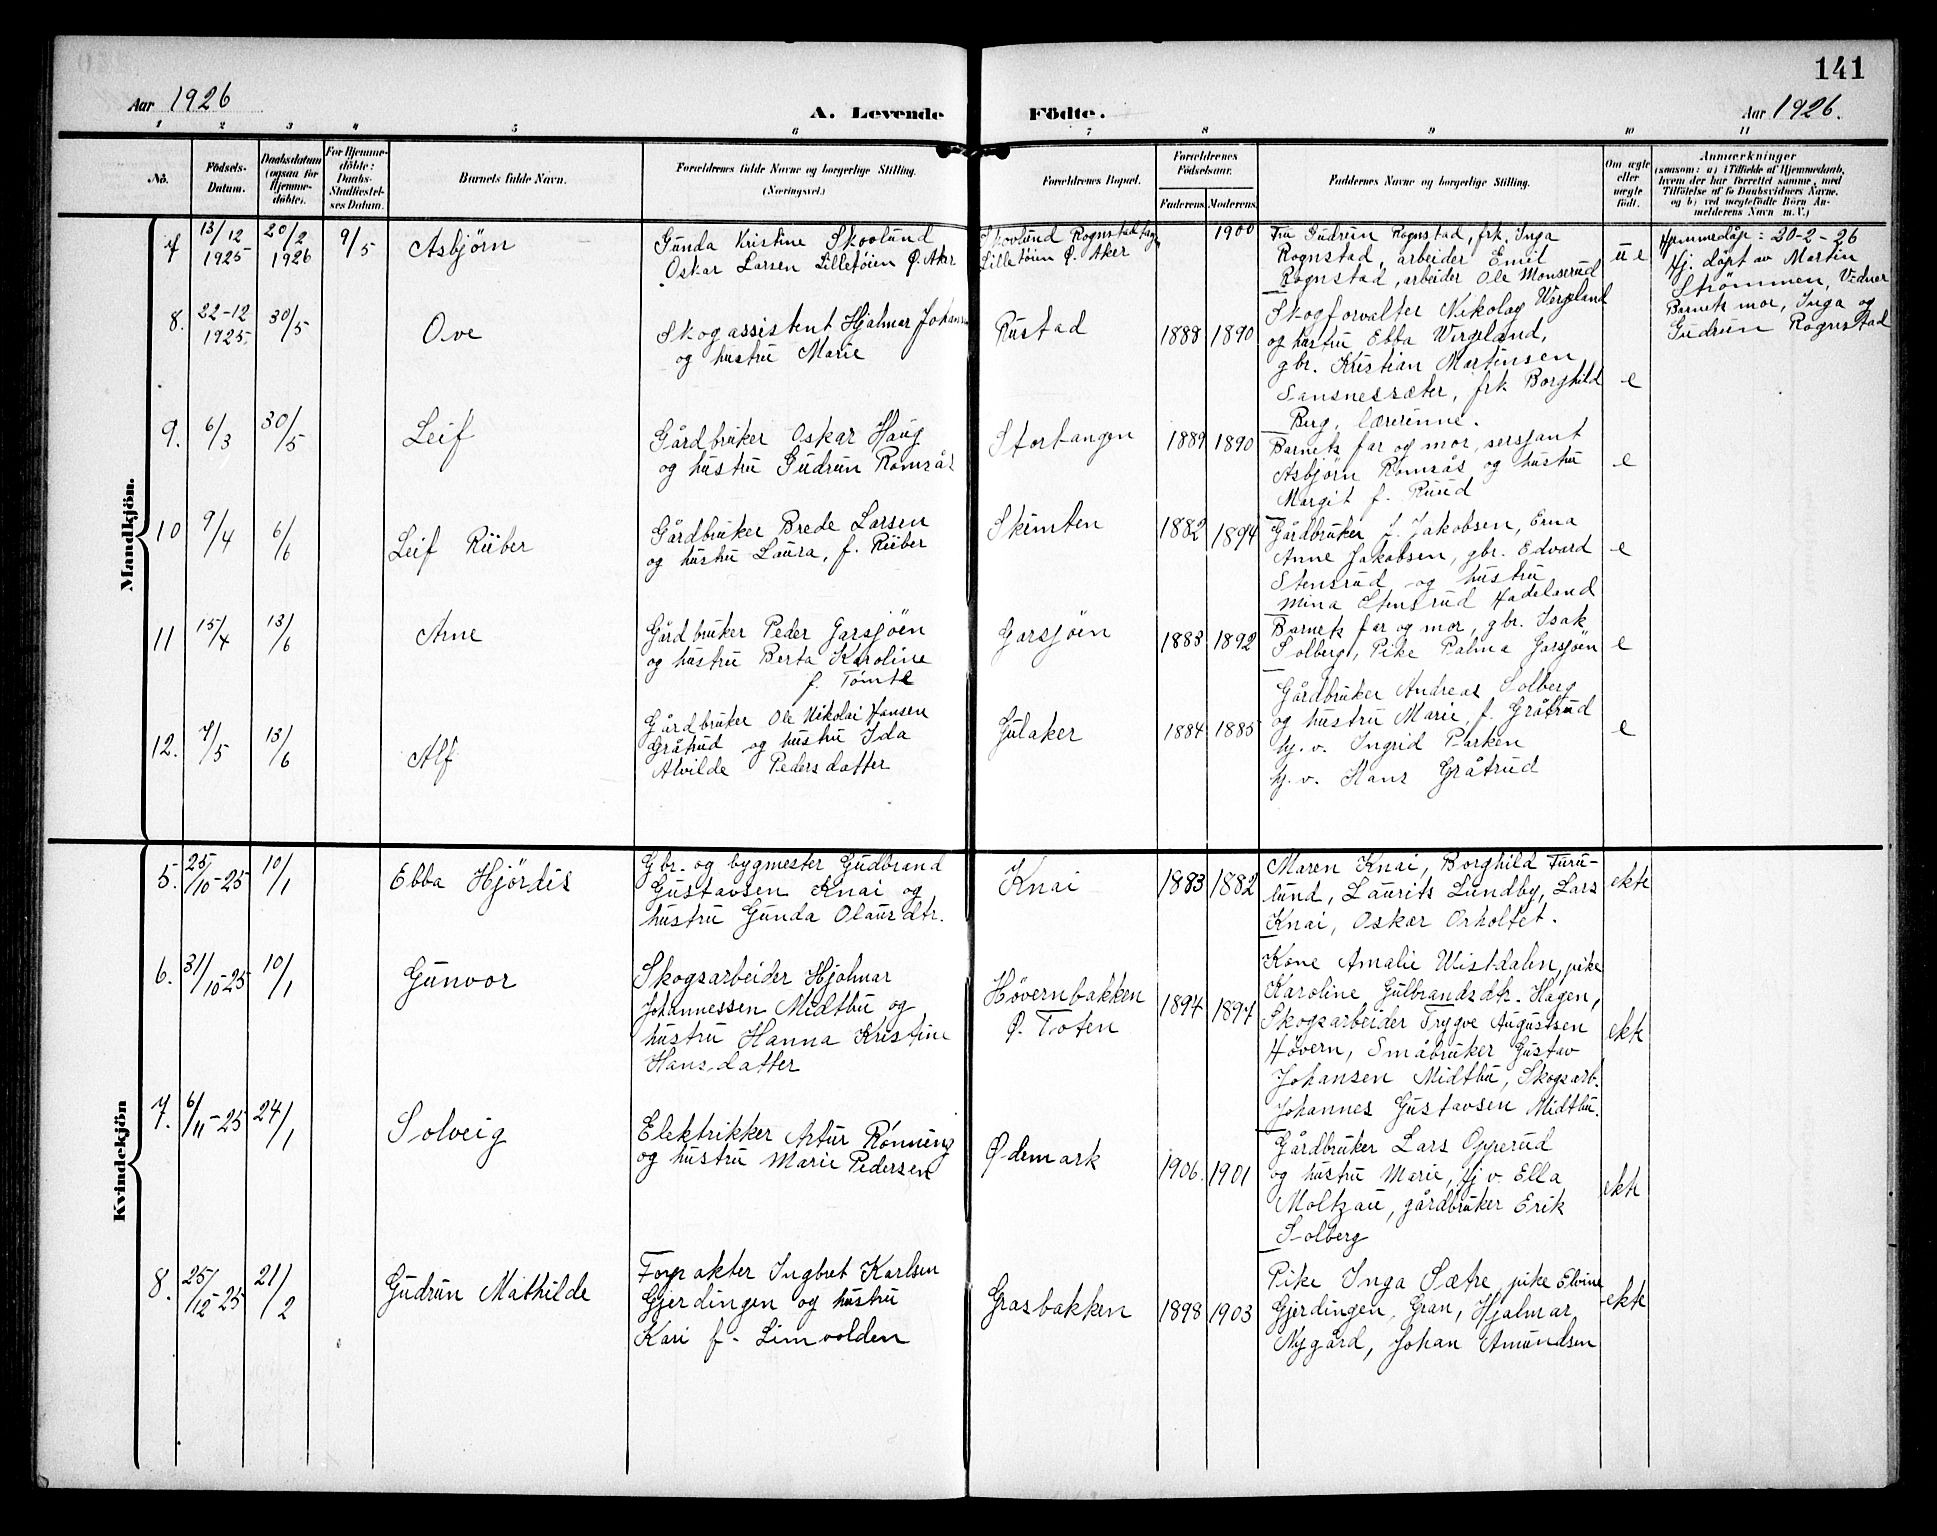 141
Aar 1926
A. Levende Födte.
Aar 1926.
1 2 3 4 5 6 7 8 9 10 11
No.
Födsels-
Datum.
Daabsdatum
(ogsaa for
Hjemme-
döbte).
For Hjemme-
döbte:
Daabs-
Stadfæstel-
ses Datum.
Barnets fulde Navn.
Forældrenes fulde Navne og borgerlige Stilling.
(Næringsvei.)
Forældrenes Bopæl.
Forældrenes
Födselsaar.
Faderens. Moderens.
Faddernes Navne og borgerlige Stilling.
Om ægte
eller
uægte
födt.
Anmærkninger
(saasom: a) i Tilfælde af Hjemmedaab,
hvem der har forrettet samme, med
Tilföielse af to Daabsvidners Navne.
og b) ved uægtefödte Börn An-
melderens Navn m. V.)
Mandkjön.
7
13/12
1925
20/2
1926
9/5
Asbjørn
Gunda Kristine Skovlund
Oskar Larsen Lilletøien Ø. Aker
Skovlund Rognstad
Lilletøien Ø. Aker
1900
Fru Gudrun Rognstad, frk. Inga
Rognstad, arbeider Emil
Rognstad, arbeider Ole Monserud
u e
Hjemmedåp: 20-2-26
Hj. døpt av Martin
Strømmen, Vidner
Barnets mor, Inga og
Gudrun Rognstad
8.
22-12
1925.
30/5
Ove
Skogassistent Hjalmar Johans
og hustru Marie
Rustad
1888 1890
Skogforvalter Nikolay Wergeland
og hustru Ebba Wergeland,
gbr. Kristian Martinsen
Sansnessæter, frk Borghild
Berg, lærerinne.
e
9.
6/3
30/5
Leif
Gårdbruker Oskar Haug
og hustru Gudrun Romsås
Stortangen
1889 1890
Barnets far og mor, sersjant
Asbjørn Romsås og hustru
Margit f. Ruud
e
10
9/4
6/6
Leif Riiber
Gårdbruker Brede Larsen
og hustru Laura, f. Riiber
Skimten
1882 1894
Gårdbruker L. Jakobsen, Erna
Anne Jakobsen, gbr. Edvard
Stensrud og hustru
Mina Stensrud Hadeland
e
11
15/4
13/6
Arne
Gårdbruker Peder Garsjøen
og hustru Berta Karoline
f. Tømte
Garsjøen
1883 1892
Barnets far og mor, gbr. Isak
Solberg, Pike Palma Garsjøen
e
12.
7/5
13/6
Alf
Gårdbruker Ole Nikolai Hansen
Gråtrud og hustru Ida
Alvilde Pedersdatter
Gulaker
1884 1885
Gårdbruker Andreas Solberg
og hustru Marie f. Gråtrud
hj. v. Ingrid Parken
hj. v. Hans Gråtrud
e
Kvindekjön
5.
25/10-25
10/1
Ebba Hjördis
Gbr. og bygmester Gudbrand
Gustavsen Knai og
hustru Gunda Olausdtr.
Knai
1883 1882
Maren Knai, Borghild Furu-
lund, Laurits Lundby, Lars
Knai, Oskar Orholtet.
ekte
6.
31/10-25
10/1
Gunvor
Skogsarbeider Hjalmar
Johannessen Midthu og
hustru Hanna Kristine
Hansdatter
Høvernbakken
Ø. Toten
1894 1894
Kone Amalie Wistdalen, pike
Karoline Gulbrandsdtr. Hagen,
Skogsarbeider Trygve Augustsen
Høvern, Småbruker Gustav
Johansen Midthu, Skogsarb.
Johannes Gustavsen Midthu.
ekte
7.
6/11-25
24/1
Solveig
Elektrikker Artur Rønning
og hustru Marie Pedersen
Ødemark
1906. 1901
Gårdbruker Lars Opperud
og hustru Marie, hj v. Ella
Moltzau, gårdbruker Erik
Solberg
ekte
8.
25/12-25
21/2
Gudrun Mathilde
Forpakter Ingbret Karlsen
Gjerdingen og hustru
Kari f. Limvolden
Grasbakken
1898 1903
Pike Inga Sætre, pike Elvine
Gjerdingen, Gran, Hjalmar
Nygård, Johan Amundsen
ekte